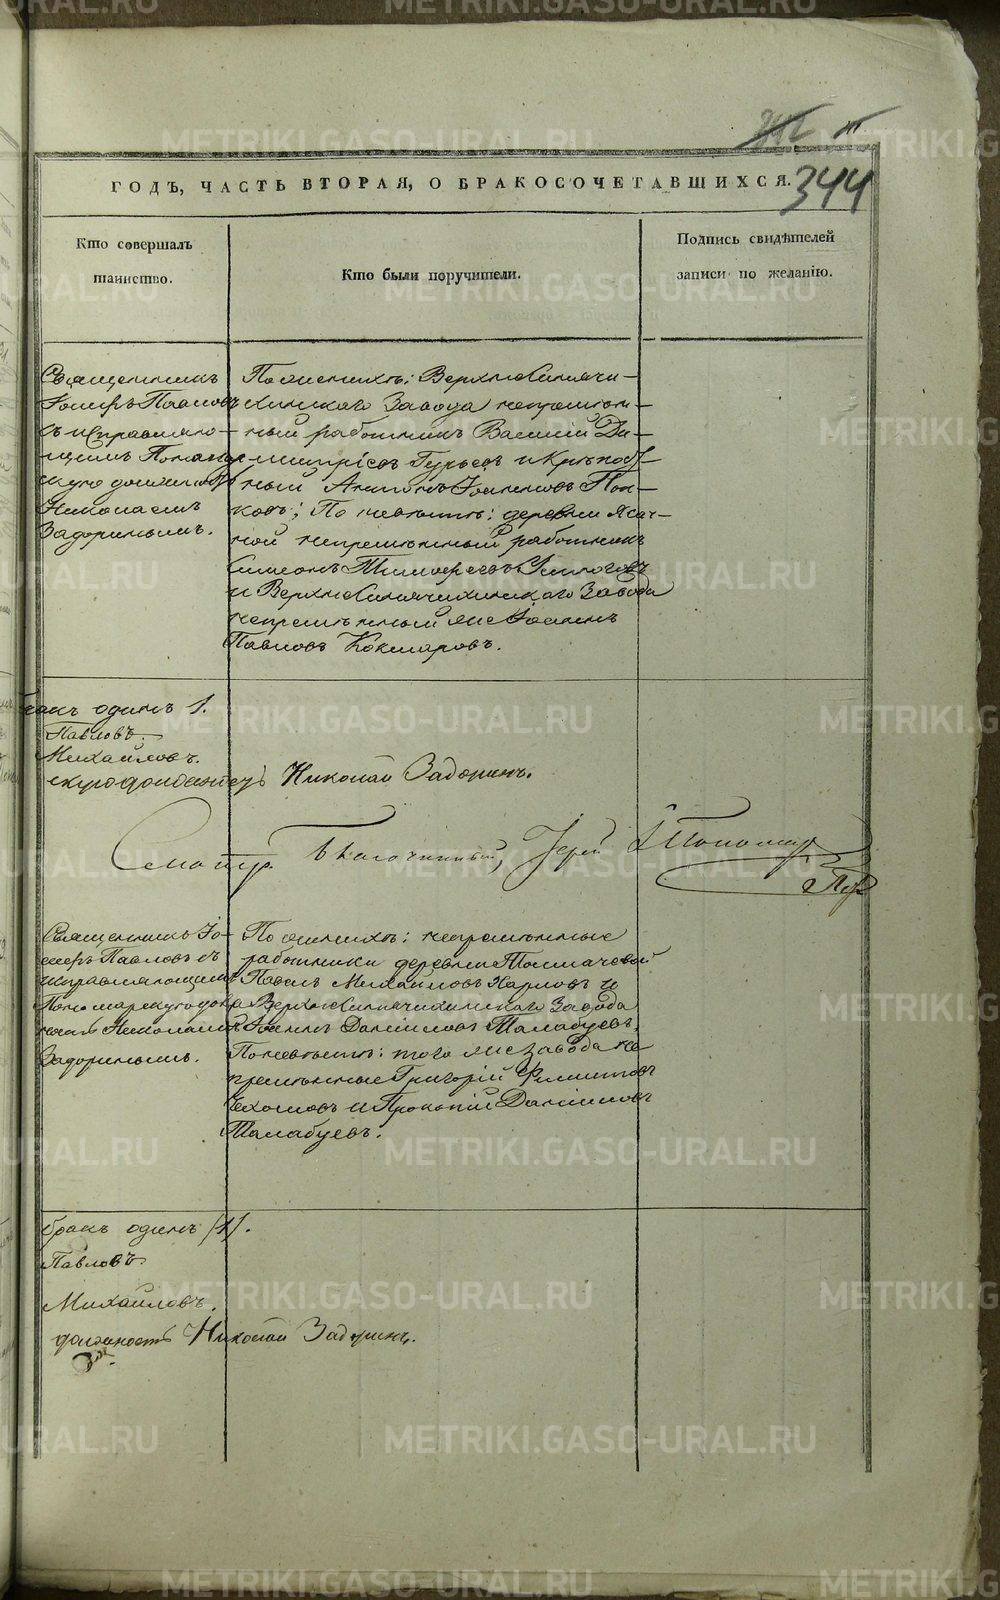 METRIKI.GASO-URAL.RU
344
ГОДЪ, ЧАСТЬ ВТОРАЯ, О БРАКОСОЧЕТАВШИХСЯ.
Кто совершалъ
таинство.
Кто были поручители.
Подпись свидѣтелей
записи по желанію.
Священникъ
Іосифъ Павловъ
съ исправляю-
щимъ Понамар-
скую должность
Николаемъ
Задоринымъ.
По женихѣ: Верхнесинячи-
хинскаго Завода непремѣн-
ный работникъ Василій Ди-
митріевъ Гурьевъ и
ный Іоанновъ Поп-
ковъ; По невѣстѣ: деревни Ясач-
ной непремѣнный работникъ
Симеонъ Тимофеевъ
и Верхнесинячихинскаго Завода
непремѣнный же Іоаннъ
Павловъ Кокшаровъ.
бракъ одинъ 1.
Павловъ.
Михайловъ.
Николай Задоринъ.
Смотр. Благочинный, Іерей
Священникъ Іо-
сифъ Павловъ съ
исправляющимъ
Пономарскую долж-
ность Николаемъ
Задоринымъ.
По женихѣ: непремѣнные
работники деревни Толмачевой
Павелъ Михайловъ Карповъ и
Верхнесинячихинскаго Завода
Іоаннъ Даниловъ Талабуевъ,
По невѣстѣ: того же завода не
премѣнные Григорій Филиповъ
и Прокопій Даниловъ
Талабуевъ.
бракъ одинъ /1/.
Павловъ.
Михайловъ.
должность Николай Задоринъ.